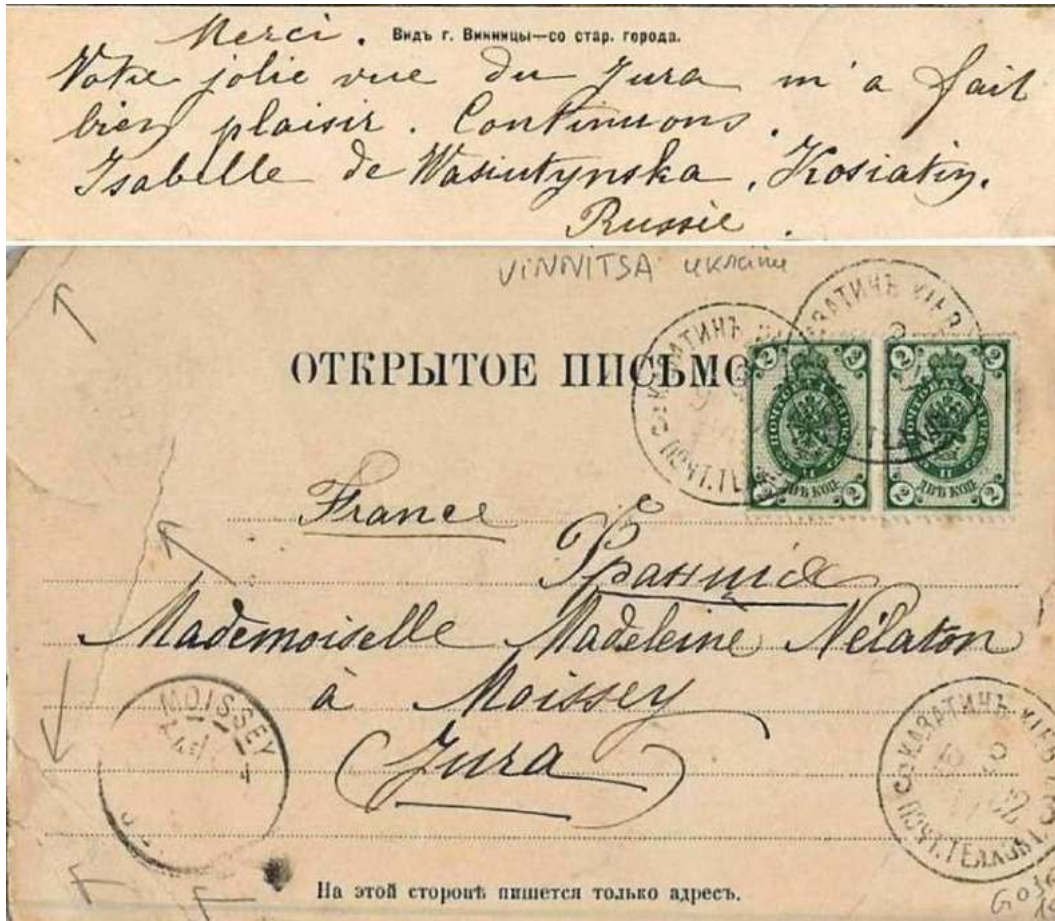 Merci. Видъ г. Винницы—со стар. города.
Votre jolie vue du Jura m'a fait
bien plaisir. Continuons.
Isabelle de Wasiutynska, Kosiatin.
Russie.
VINNITSA ukraine
ОТКРЫТОЕ ПИСЬМО
2 2 2 2
ПОЧТОВАЯ МАРКА
ДВѢ КОП.
2 2 2 2
France
Франція
Mademoiselle Madeleine Nélaton
à Moissey
Jura
MOISSEY
КАЗАТИНЪ КІЕВ
ПОЧТ. ТЕЛ.
На этой сторонѣ пишется только адресъ.